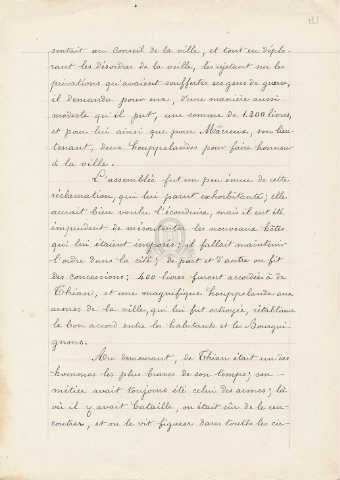 sentait au Conseil de la ville, et tout en déplo-
rant les désordres de la veille, les rejetant sur les
privations qu'avaient souffertes ses gens de guerre,
il demanda pour eux, d'une manière aussi
modeste qu'il put, une somme de 1.200 livres,
et pour lui ainsi que pour Méreux, son lieu-
tenant, deux houppelandes pour faire honneur
à la ville.
L'assemblée fut un peu émue de cette
réclamation, qui lui parut exhorbitante; elle
aurait bien voulu l'éconduire, mais il eut été
imprudent de mécontenter les nouveaux hôtes
qui lui étaient imposés; il fallait maintenir
l'ordre dans la cité; de part et d'autre on fit
des concessions; 400 livres furent accordées à de
Thian, et une magnifique houppelande aux
armes de la ville, qui lui fut octroyée, rétablit
le bon accord entre les habitants et les Bourgui-
gnons.
Au demeurant, de Thian était un des
hommes les plus braves de son temps; son
métier avait toujours été celui des armes; là
où il y avait bataille, on était sûr de le ren-
contrer, et on le vit figurer dans toutes les cir-